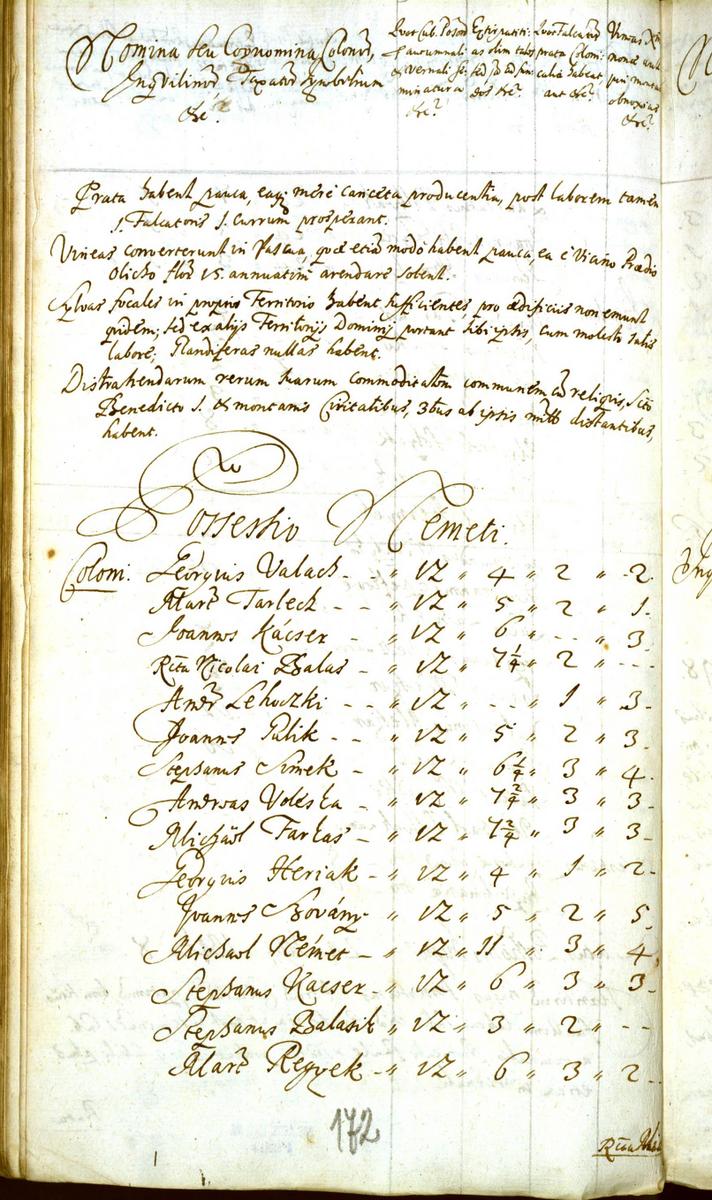 Nomina seu Cognomina Colonor̃,
Inqvilinor̃ Taxator̃ Subditum
&c?
Qvot Cub. Poson
& autumnali:
& vernali se:
minatura
&c?
Extirpatiti:
as olim tabs
sed
dos &c?
Qvot Falcator̃
prata Coloni:
culia habeat
aut &c?
Vineas
nonæ
obnoxias
&c?
Prata habent pauca, eaq; mere cariceta producentia, post laborem tamen
1. Falcatoris 1. Currum prosperant.
Vineas converterunt in Pascua, quæ etiã modo habent pauca, ea è Vicino Prædio
Olicho flor 15. annuatim arendare solent.
Sylvas focales in proprio Territorio habent sufficientes, pro ædificiis non emunt
quidem; sed ex alijs Territorijs Dominij portant sibi ipsis, cum molesto satis
labore; Glandiferas nullas habent.
Distrahendarum rerum suarum commoditatem communem cũ reliquis, Scto
Benedicto 1. & montanis Civitatibus, 3bus ab ipsis distantibus,
habent.
Possessio Németi.
Coloni. Georgius Valach - - " 12 " 4 " 2 " 2.
Mart Tarleck - - " 12 " 5 " 2 " 1.
Joannes Kácser - " 12 " 6 " - - " 3.
Rta Nicolai Balas - " 12 " 7 1/4 " 2 " - - -
Andr Lehoczki - - " 12 " - - " 1 " 3.
Joannes Pulik - - " 12 " 5 " 2 " 3.
Stephanus Simek - " 12 " 6 1/4 " 3 " 4.
Andreas Voleska - " 12 " 7 2/4 " 3 " 3.
Michael Farkas - " 12 " 7 2/4 " 3 " 3.
Georgius Heriak - " 12 " 4 " 1 " 2.
Joannes Bovány - " 12 " 5 " 2 " 5.
Michael Német - " 12 " 11 " 3 " 4.
Stephanus Kacser - " 12 " 6 " 3 " 3.
Stephanus Balasik " 12 " 3 " 2 " - -
Mart Regyek - " 12 " 6 " 3 " 2 -
172
Rta